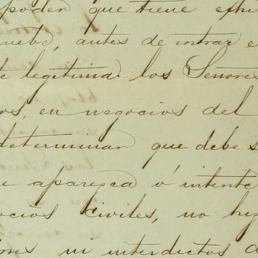 poder que tiene
antes de entrar e
legitima los Señores
os, en negocios del
determinar que debe s
aparezca ó intente
ocios civiles, no
ones ni interdictos